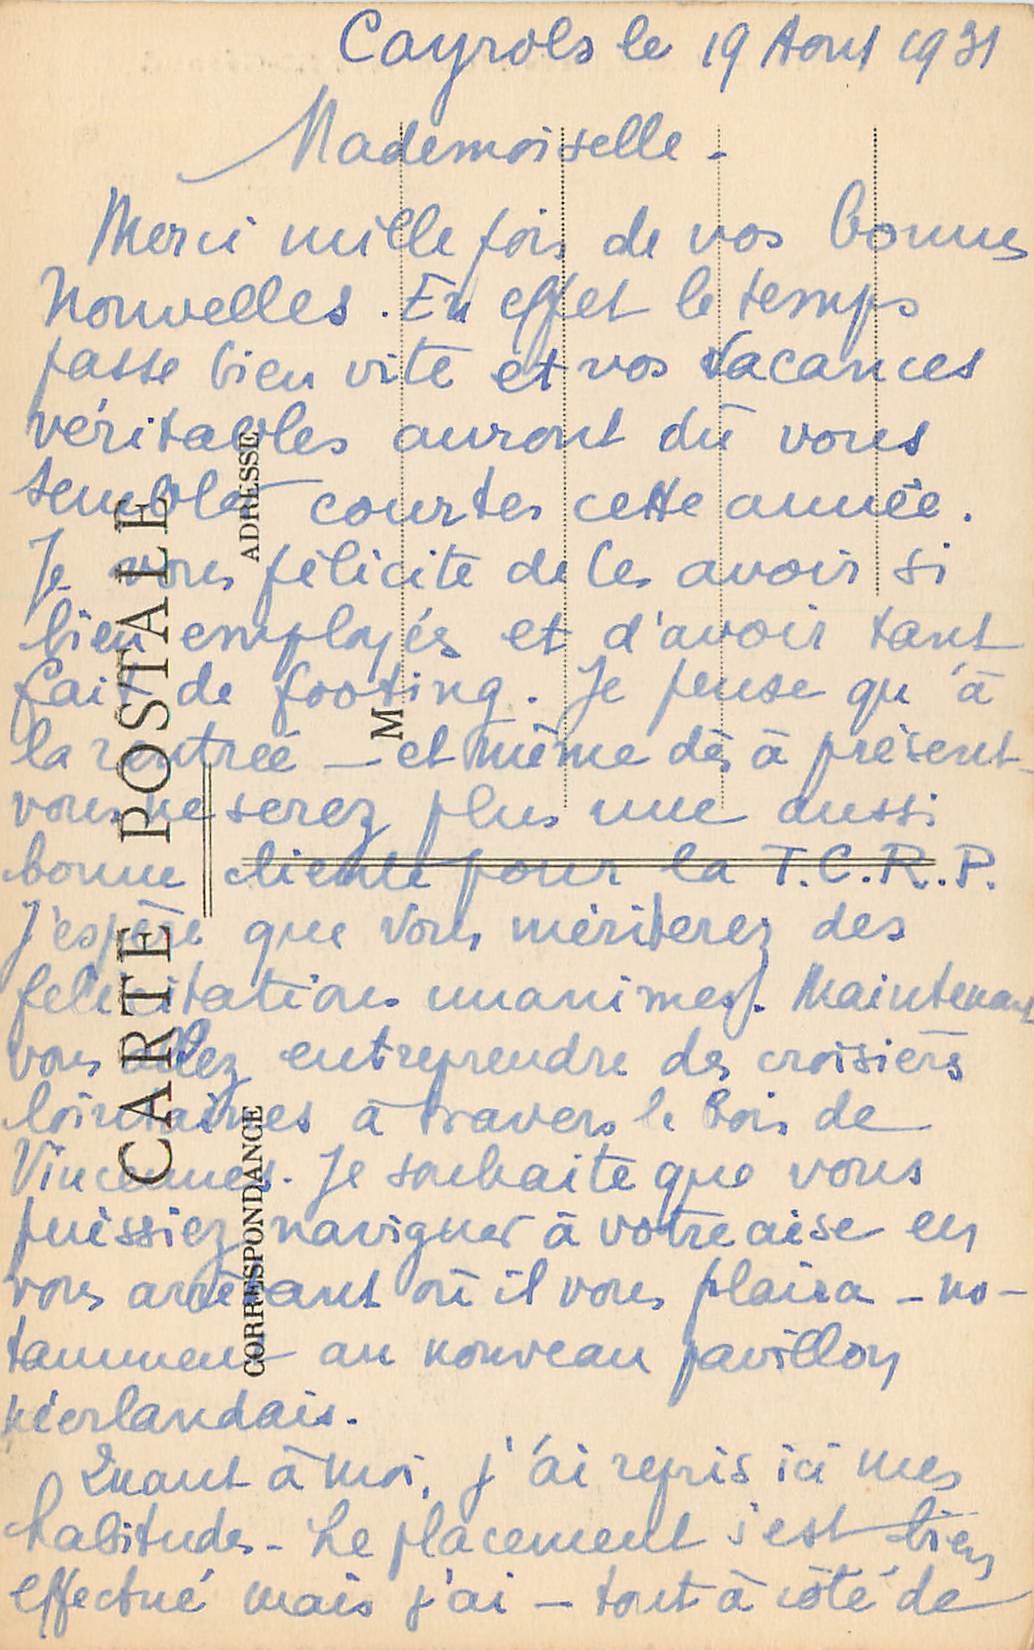 Cayrols le 19 Aout 1931
Mademoiselle -
Merci mille fois de vos bonnes
Nouvelles. En effet le temps
passe bien vite et vos vacances
véritables auront dû vous
sembler courtes cette année.
Je vous félicite de les avoir si
bien employés et d'avoir tant
fait de footing. Je pense qu'à
la rentrée - et même dès à présent -
vous ne serez plus une aussi
bonne cliente pour la T.C.R.P.
J'espère que vous mériterez des
félicitations unanimes. Maintenant
vous allez entreprendre des croisières
lointaines à travers le Bois de
Vincennes. Je souhaite que vous
puissiez naviguer à votre aise en
vous arrêtant où il vous plaira - no-
tamment au nouveau pavillon
néerlandais.
Quant à moi, j'ai repris ici mes
habitudes - Le placement s'est bien
effectué mais j'ai - tout à côté de
CARTE POSTALE
CORRESPONDANCE
ADRESSE
M